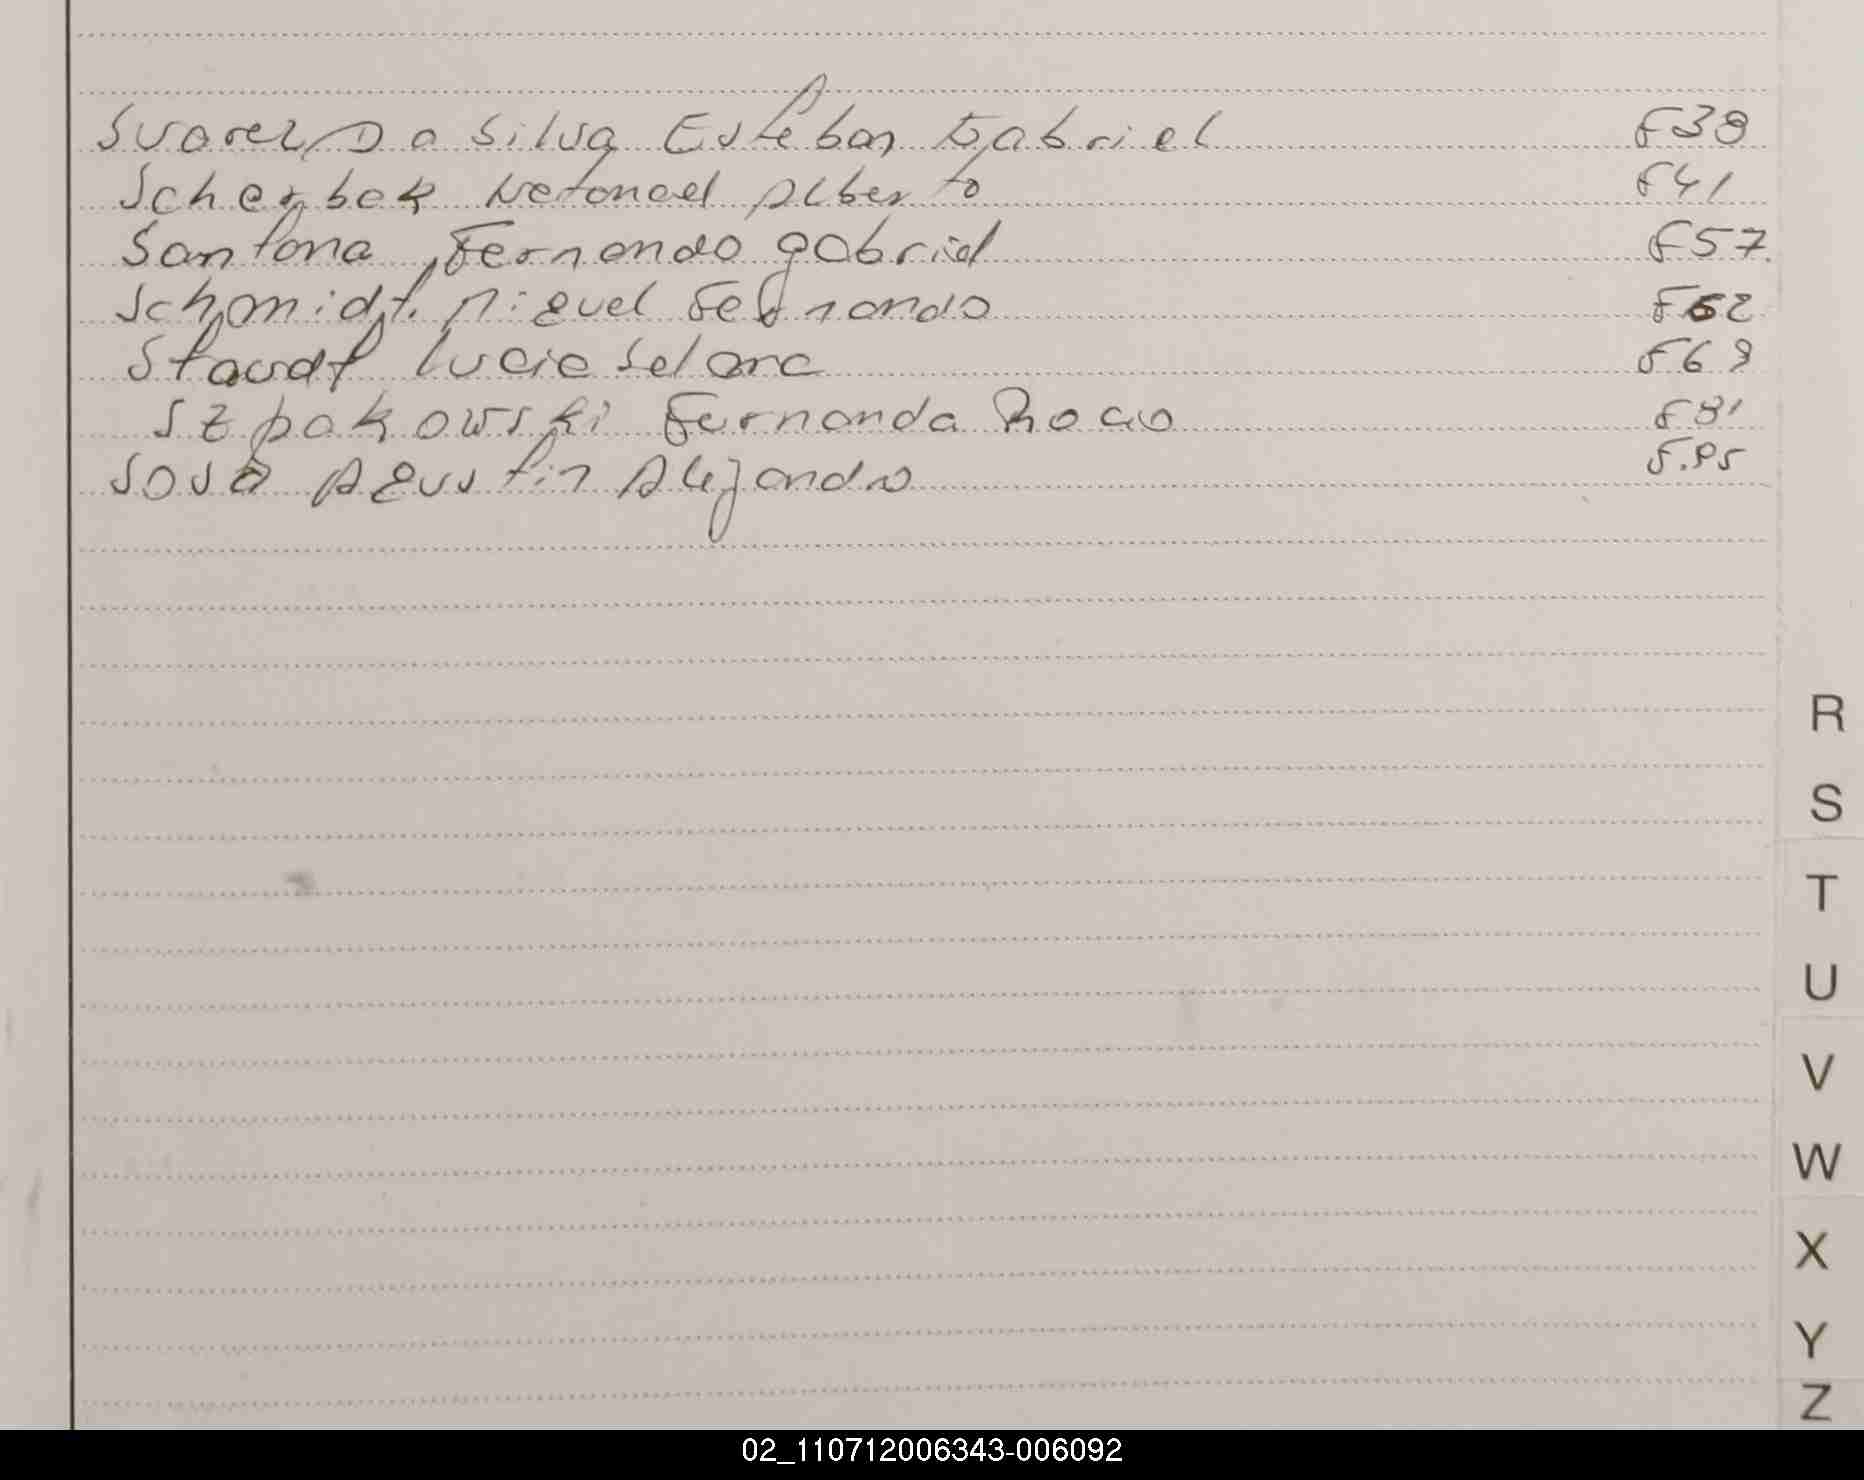 Suarez Da Silva Esteban Gabriel F38
Scherbek Netanael Alberto F41
Santana, Fernando gabriel F57.
Schmidt. Miguel Fernando F62
Staudt Lucie Selana F69
Szpakowski Fernanda Rocio F81
Sosa Agustin Alejandro F.95
R
S
T
U
V
W
X
Y
Z
02_110712006343-006092